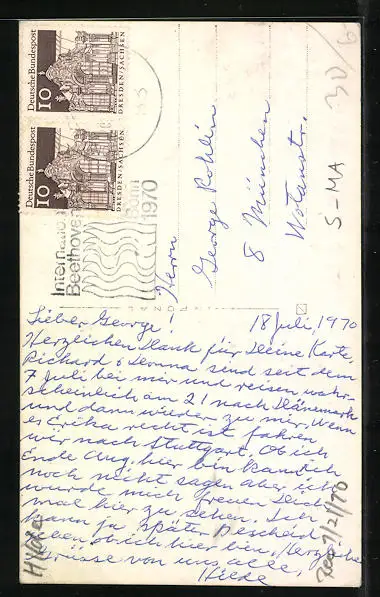 Deutsche Bundespost
10
DRESDEN/SACHSEN
Deutsche Bundespost
10
DRESDEN/SACHSEN
Internatio
Beethove
Bonn
1970
Herrn
George
8 München
Wotanstr.
S-MA
30/6
18 Juli, 1970
Lieber George!
Herzlichen Dank für Deine Karte,
Richard & sind seit dem
7 Juli bei mir und reisen wahr-
scheinlich am 21 nach Dänemark
und dann wieder zu mir. Wenn
es Erika recht ist fahren
wir nach Stuttgart. Ob ich
Ende Aug. hier bin kann ich
noch nicht sagen aber ich
würde mich freuen Dich
mal hier zu sehen. Ich
kann ja später Bescheid
geben ob ich hier bin. Herzliche
Grüsse von uns alle,
Hilde